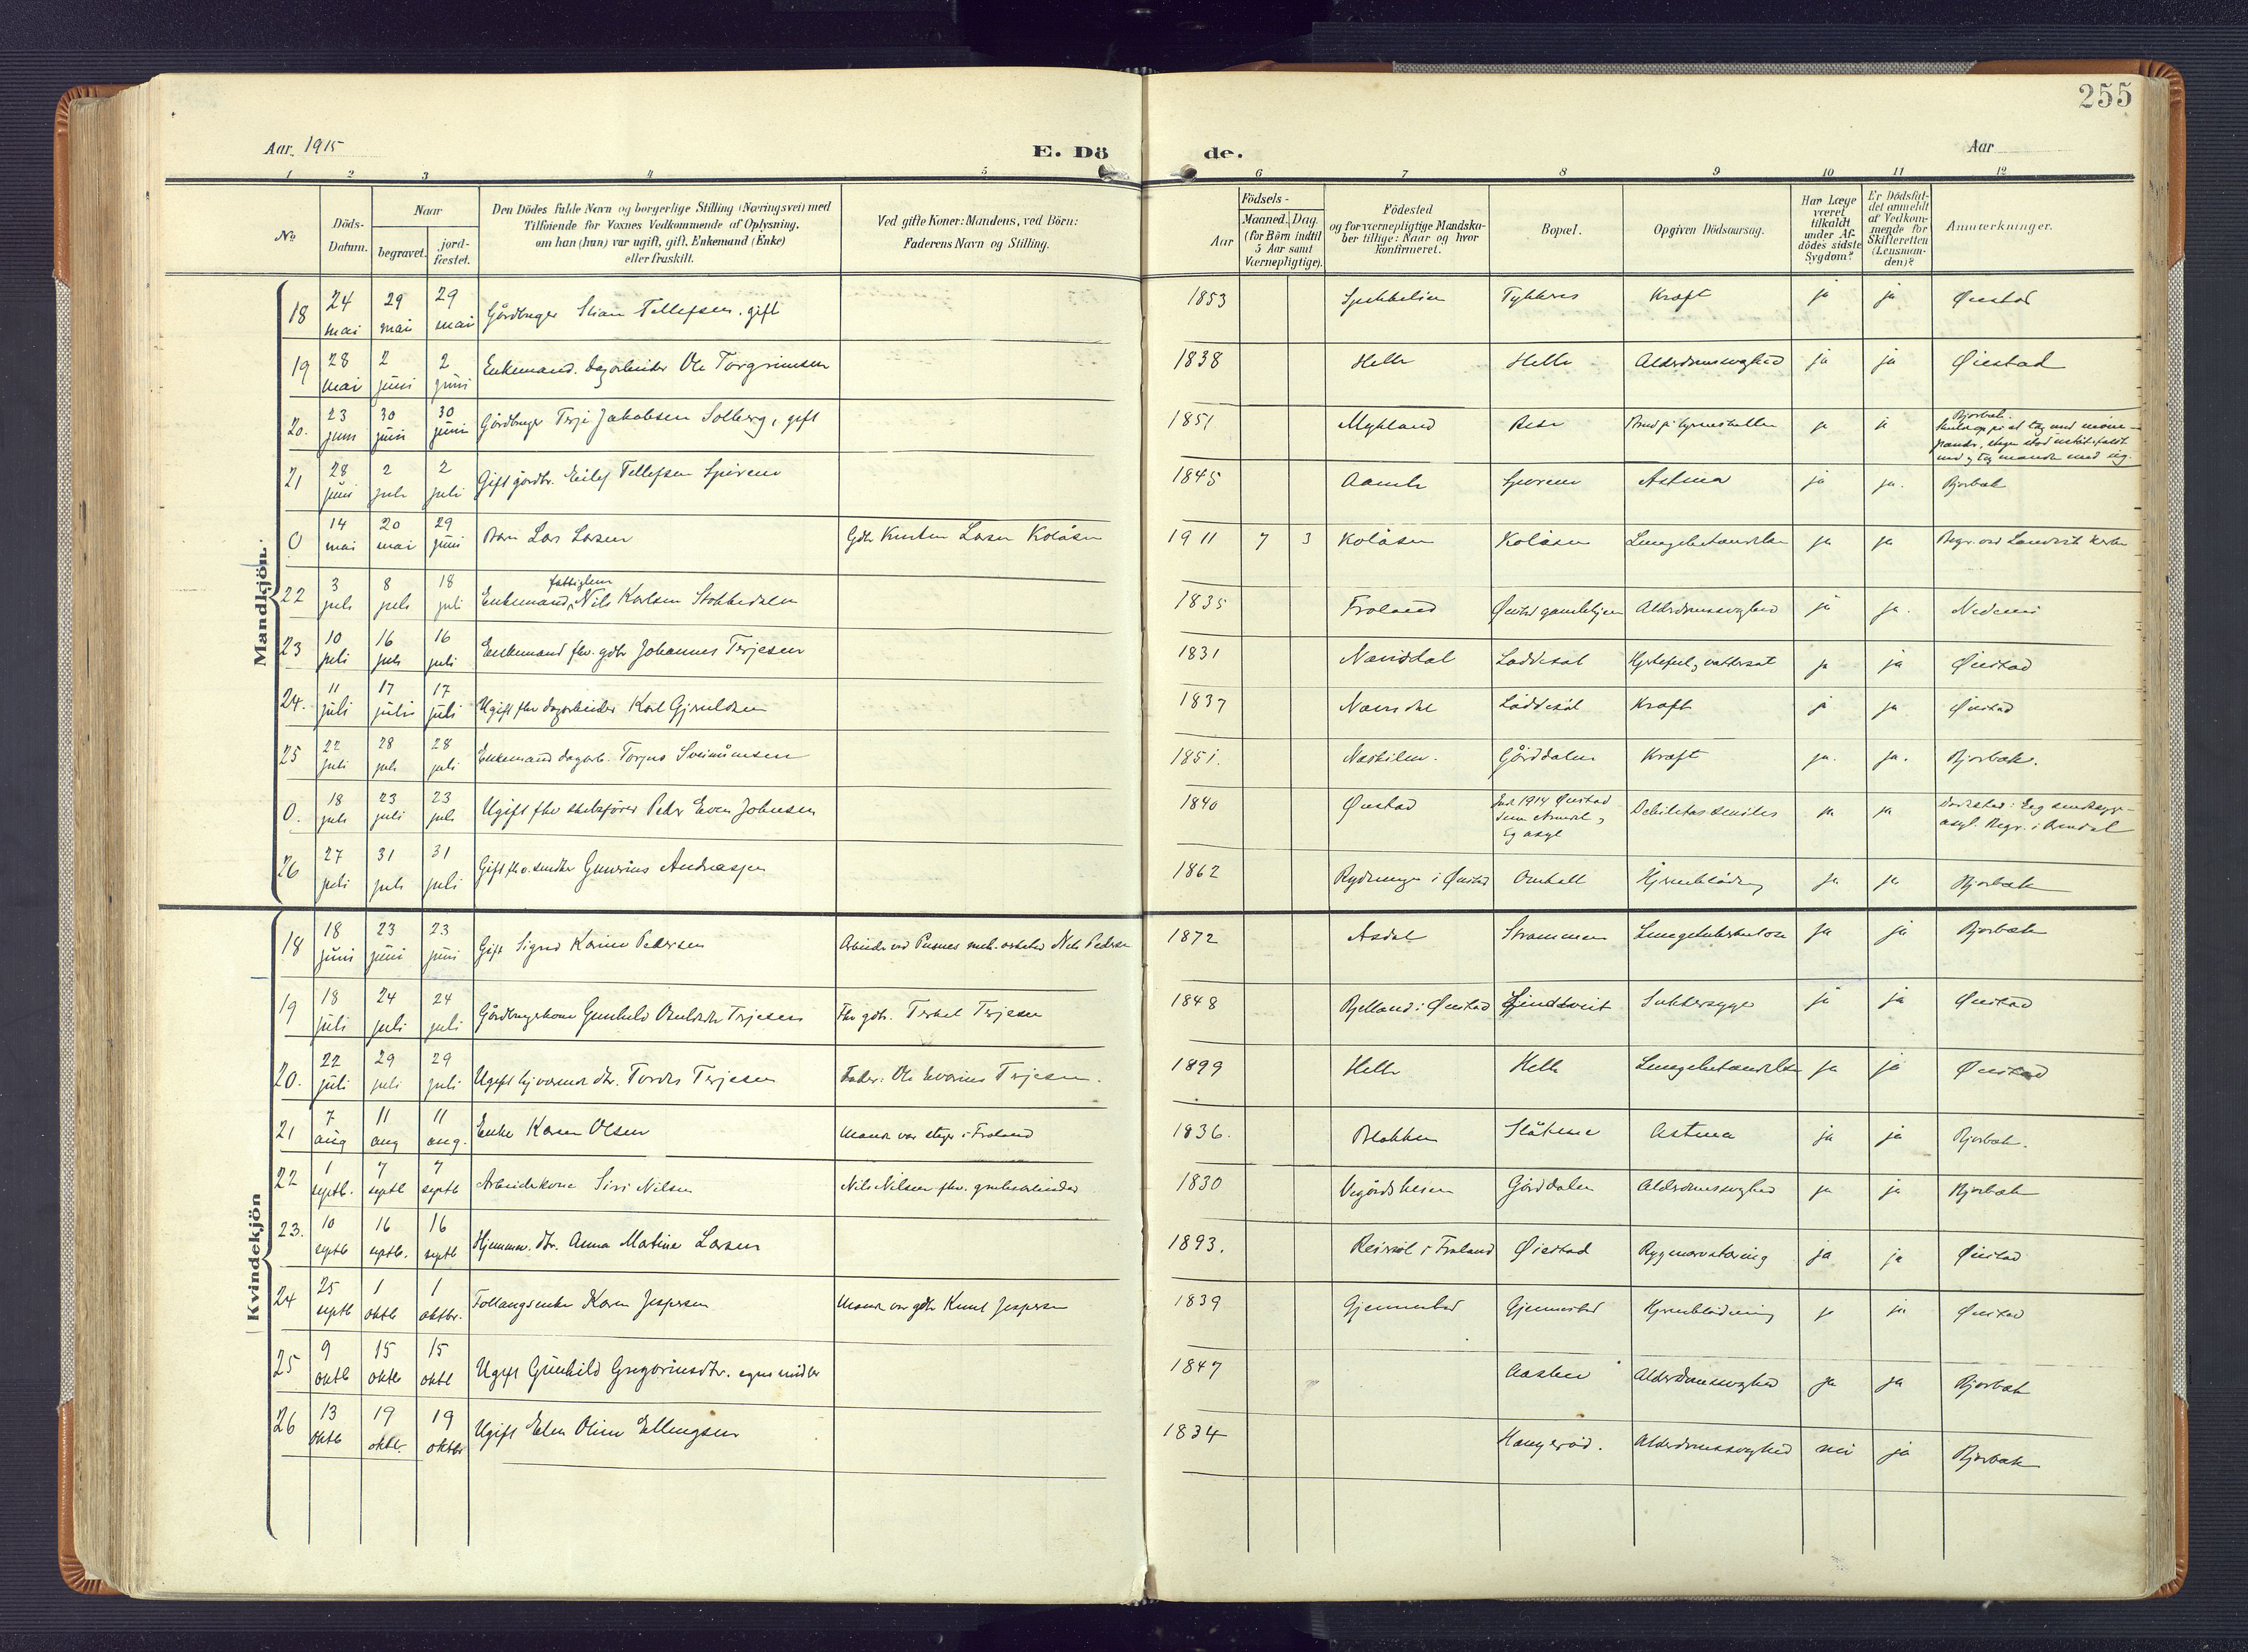 255
Aar 1915 E. Döde. Aar
1 2 3 4 5 6 7 8 9 10 11 12
No
Döds-Datum.
Naar
begravet. jord-fæstet.
Den Dödes fulde Navn og borgerlige Stilling (Næringsvei) med
Tilföiende for Voxnes Vedkommende af Oplysning,
om han (hun) var ugift, gift, Enkemand (Enke)
eller fraskilt.
Ved gifte Koner: Mandens, ved Börn:
Faderens Navn og Stilling.
Födsels-
Aar Maaned. Dag.
(for Börn indtil
5 Aar samt
Værnepligtige).
Födested
og for værnepligtige Mandska-
ber tillige: Naar og hvor
konfirmeret.
Bopæl.
Opgiven Dödsaarsag.
Har Læge
været
tilkaldt
under Af-
dödes sidste
Sygdom?
Er Dödsfal-
det anmeldt
af Vedkom-
mende for
Skifteretten
(Lensman-
den)?
Anmærkninger.
Mandkjön.
18 24 mai 29 mai 29 mai Gårdbruger Tellefsen. gift 1853 Kræft ja ja Øiestad
19 28 mai 2 juni 2 juni Enkemand. dagarbeider Ole Torgrimsen 1838 Helle Helle Alderdomssvaghed ja ja Øiestad
20. 23 juni 30 juni 30 juni Gårdbruger Terje Jakobsen Solberg, gift 1851 Mykland ja ja Bjorbæk.
21 28 juni 2 juli 2 juli Gift gårdbr. Eilef Tellefsen 1845 Astma ja ja. Bjorbæk
0 14 mai 20 mai 29 juni Barn Lars Larsen Gdbr Larsen Kolåsen 1911 7 3 Kolåsen Kolåsen Lungebetændelse ja ja Begr. ved Landvik kirke
22 3 juli 8 juli 18 juli Enkemand, fattiglem Nils Karlsen Stokkedalen 1835 Froland Øiestad gamlehjem Alderdomssvaghed ja ja. Nedenes
23 10 juli 16 juli 16 juli Enkemand fhv. gdbr Johannes Terjesen 1831 Næsdal Løddesøl Hjertefeil og vattersot ja ja Øiestad
24. 11 juli 17 juli 17 juli Ugift fhv dagarbeider Karl Gjeruldsen 1837 Løddesøl Kræft ja ja Øiestad
25 22 juli 28 juli 28 juli Enkemand dagarb. Torjus Sveinumsen 1851. Gårddalen Kræft ja. ja. Bjorbæk.
0. 18 juli 23 juli 23 juli Ugift fhv skibsfører Peder Even Johnsen 1840 Øiestad Debilitas senilis ja ja Dødssted: Eg sindssyge-
asyl. Begr. i Arendal
26 27 juli 31 juli 31 juli Gift fhv. Gunerius Andreasen 1862 i Øiestad Hjerneblødning ja ja Bjorbæk
Kvindekjön
18 18 juni 23 juni 23 juni Gift Sigrid Karine Pedersen Arbeider ved Pusnes mek. verksted Nils Pedersen 1872 Asdal Strømmen Lungetuberkulose ja ja Bjorbæk
19 18 juli 24 juli 24 juli Gårdbrugerkone Gunhild Terjesen Fhv gdbr. Terkel Terjesen 1848 Bjelland i Øiestad Lindtveit Sukkersyge ja ja Øiestad
20. 22 juli 29 juli 29 juli Ugift hjemmev. dtr. Tordis Terjesen Fader: Ole Severius Terjesen. 1899 Helle Helle Lungebetændelse ja ja Øiestad
21 7 aug 11 aug 11 aug. Enke Karen Olsen Manden var steiger i Froland 1836. Blakken Astma ja ja Bjorbæk.
22 1 septb. 7 septb 7 septb Arbeiderkone Siri Nilsen Nils Nilsen fhv. grubearbeider 1830 Vegårdsheien Gårddalen Alderdomssvaghed ja ja Bjorbæk
23. 10 septb 16 septb. 16 septb Hjemmev. dtr. Anna Martine Larsen 1893. i Froland Øiestad Rygmarvstæring ja ja Øiestad
24 25 septb 1 oktb 1 oktbr. Føllaugsenke Karen Jespersen Manden var gdbr Knut Jespersen 1839 Gjennestad Gjennestad Hjerneblødning ja ja Øiestad
25 9 oktb 15 oktb 15 oktb Ugift Gunhild Gregoriusdtr. egne midler 1847 Alderdomssvaghed ja ja Bjorbæk
26 13 oktb 19 oktb. 19 oktbr Ugift Elen Oline Ellingsen 1834 Alderdomssvaghed nei ja Bjorbæk